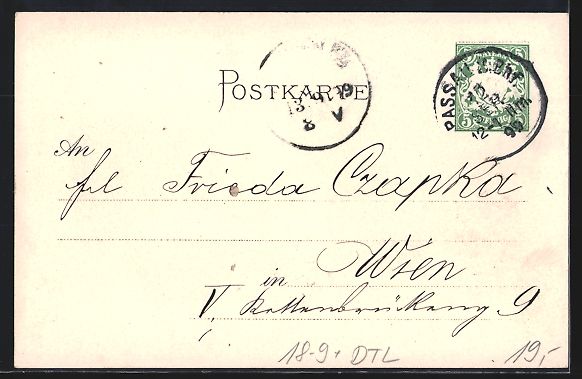 POSTKARTE
PASSAU 2.BHF.
99
5 5
An
frl Frieda Czapka
in Wien
V, Kettenbrückeng 9
18-9+ DTL 19,-